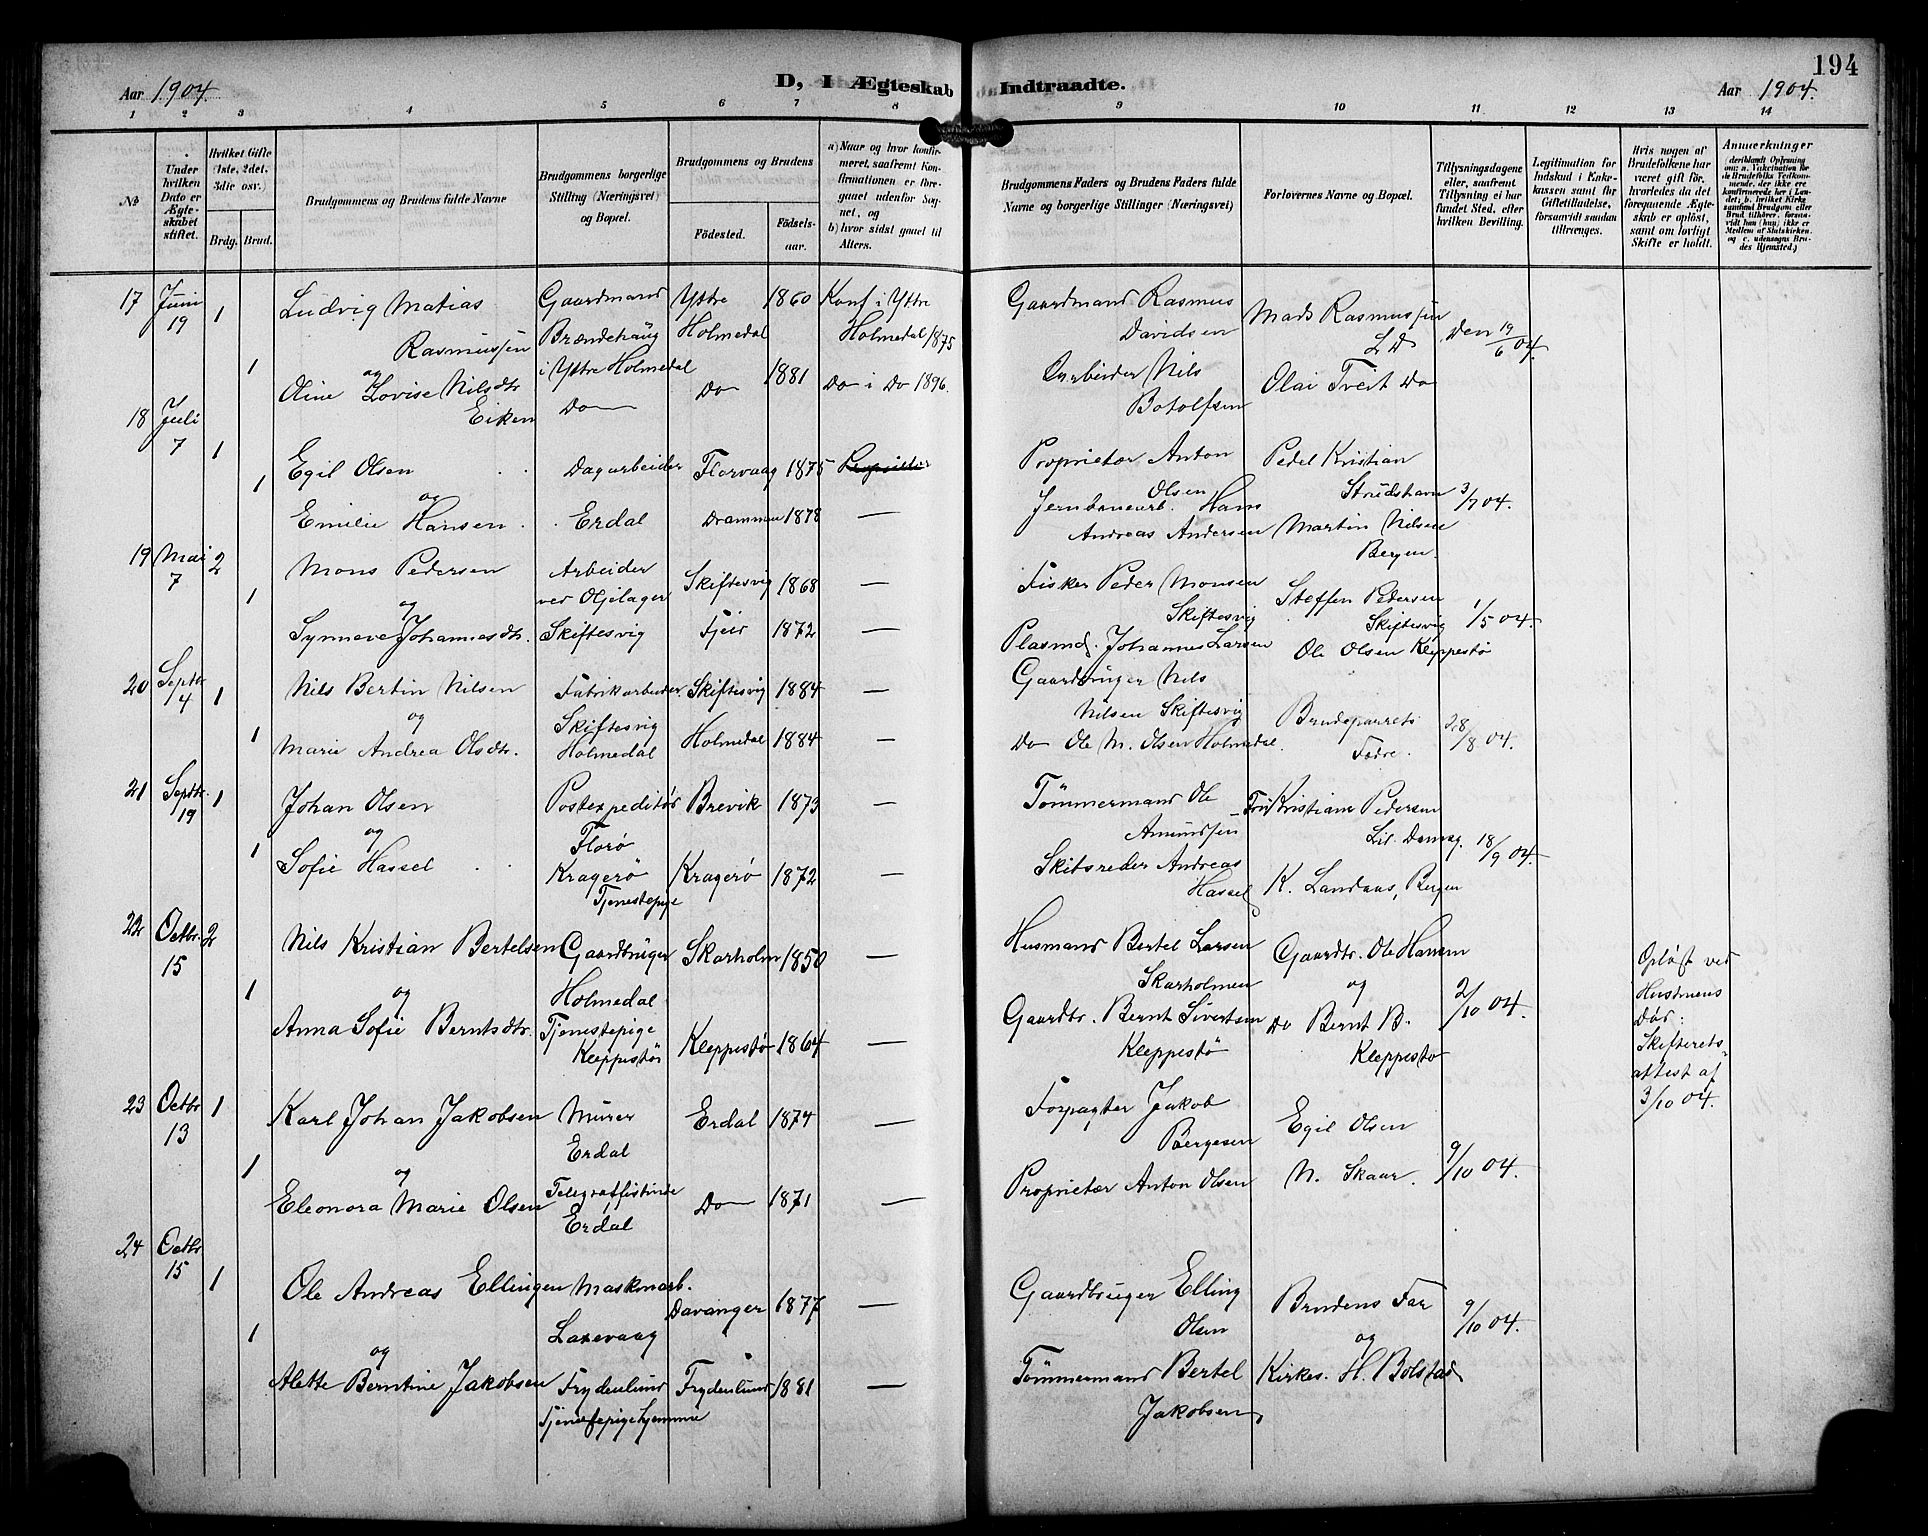 194
D, I Ægteskab Indtraadte.
Aar 1904.
Aar 1904.
1 2 3 4 5 6 7 8 9 10 11 12 13 14
No
Under hvilken Dato er Ægteskabet stiftet.
Hvilket Gifte (1ste, 2det, 3die osv.)
Brdg. Brud.
Brudgommens og Brudens fulde Navne
Brudgommens borgerlige Stilling (Næringsvei) og Bopæl.
Brudgommens og Brudens
Fødested.
Fødselsaar.
a) Naar og hvor konfirmeret, saafremt Konfirmationen er foregaaet udenfor Sognet, og
b) hvor sidst gaaet til Alters.
Brudgommens Faders og Brudens Faders fulde Navne og borgerlige Stillinger (Næringsvei)
Forlovernes Navne og Bopæl.
Tillysningsdagene eller, saafremt Tillysning ei har fundet Sted, efter hvilken Bevilling.
Legitimation for Indskud i Enkekassen samt for Giftetilladelse, forsaavidt saadan tiltrænges.
Hvis nogen af Brudefolkene har været gift før, hvorledes da det foregaaende Ægteskab er opløst, samt om lovligt Skifte er holdt.
Anmerkninger
17 Juni 19 1 Ludvig Matias Rasmussen Gaardmand Brændehaug i Ytre Holmedal Ytre Holmedal 1860 Konf i Ytre Holmedal 1875 Gaardmand Rasmus Davidsen Mads Rasmussen Den 19/6 04.
og
1 Oline Lovise Nilsdtr Eiken Do Do 1881 Do i Do 1896. Arbeider Nils Botolfsen Olai Tveit Do
18 Juli 7 1 Egil Olsen Dagarbeider Florvaag 1875 Proprietær Anton Olsen Pedel Kristian Strudshavn 3/7 04.
og
1 Emilie Hansen. Erdal Drammen 1878 — Jernbanearb. Hans Andreas Andersen Martin Nilsen Bergen.
19 Mai 7 2 Mons Pedersen Arbeider ved Oljelager Skiftesvig 1868 — Fisker Peder Monsen Skiftesvig Steffen Pedersen Skiftesvig 1/5 04.
og
1 Synneve Johannesdtr. Skiftesvig 1872 — Plasmd. Johannes Larsen Ole Olsen Kleppestø
20 Septbr 4 1 Nils Bertin Nilsen Fabrikarbeider Skiftesvig Skiftesvig 1884 — Gaardbruger Nils Nilsen Skiftesvig Brudeparrets Fædre. 28/8 04.
og
1 Marie Andrea Olsdtr. Holmedal Holmedal 1884 — Do Ole M. Olsen Holmedal.
21 Septbr. 19 1 Johan Olsen Postexpeditør Florø Brevik 1873 — Tømmermand Ole Amundsen Kristiane Pedersen 18/9 04.
og
1 Sofie Hassel Kragerø Tjenestepige Kragerø 1872 — Skibsreder Andreas Hassel K. Landaas, Bergen
22 Octbr. 15 2 Nils Kristian Bertelsen Gaardbruger Holmedal Skarholm 1850 — Husmand Bertel Larsen Skarholmen Gaardbr. Ole Hansen 2/10 04. Opløst ved Hustruens Død: Skifteretsattest af 3/10 04.
og
1 Anna Sofie Berntsdtr. Tjenestepige Kleppestø Kleppestø 1864 — Gaardbr. Bernt Sivertsen Kleppestø og Do Bernt B. Kleppestø
23 Octbr 13 1 Karl Johan Jakobsen Murer Erdal Erdal 1874 — Forpagter Jakob Børgesen Egil Olsen 9/10 04.
og
1 Eleonora Marie Olsen Telegraffistinde Erdal Do 1871 — Proprietær Anton Olsen N. Skaar.
24 Octbr 15 1 Ole Andreas Ellingsen Maskinarb. Laxevaag Davanger 1877 — Gaardbruger Elling Olsen Brudens Far 9/10 04.
og
1 Alette Berntine Jakobsen Frydenlund Tjenestepige hjemme Frydenlund 1881 — Tømmermand Bertel Jakobsen og Kirkes. H. Bolstad